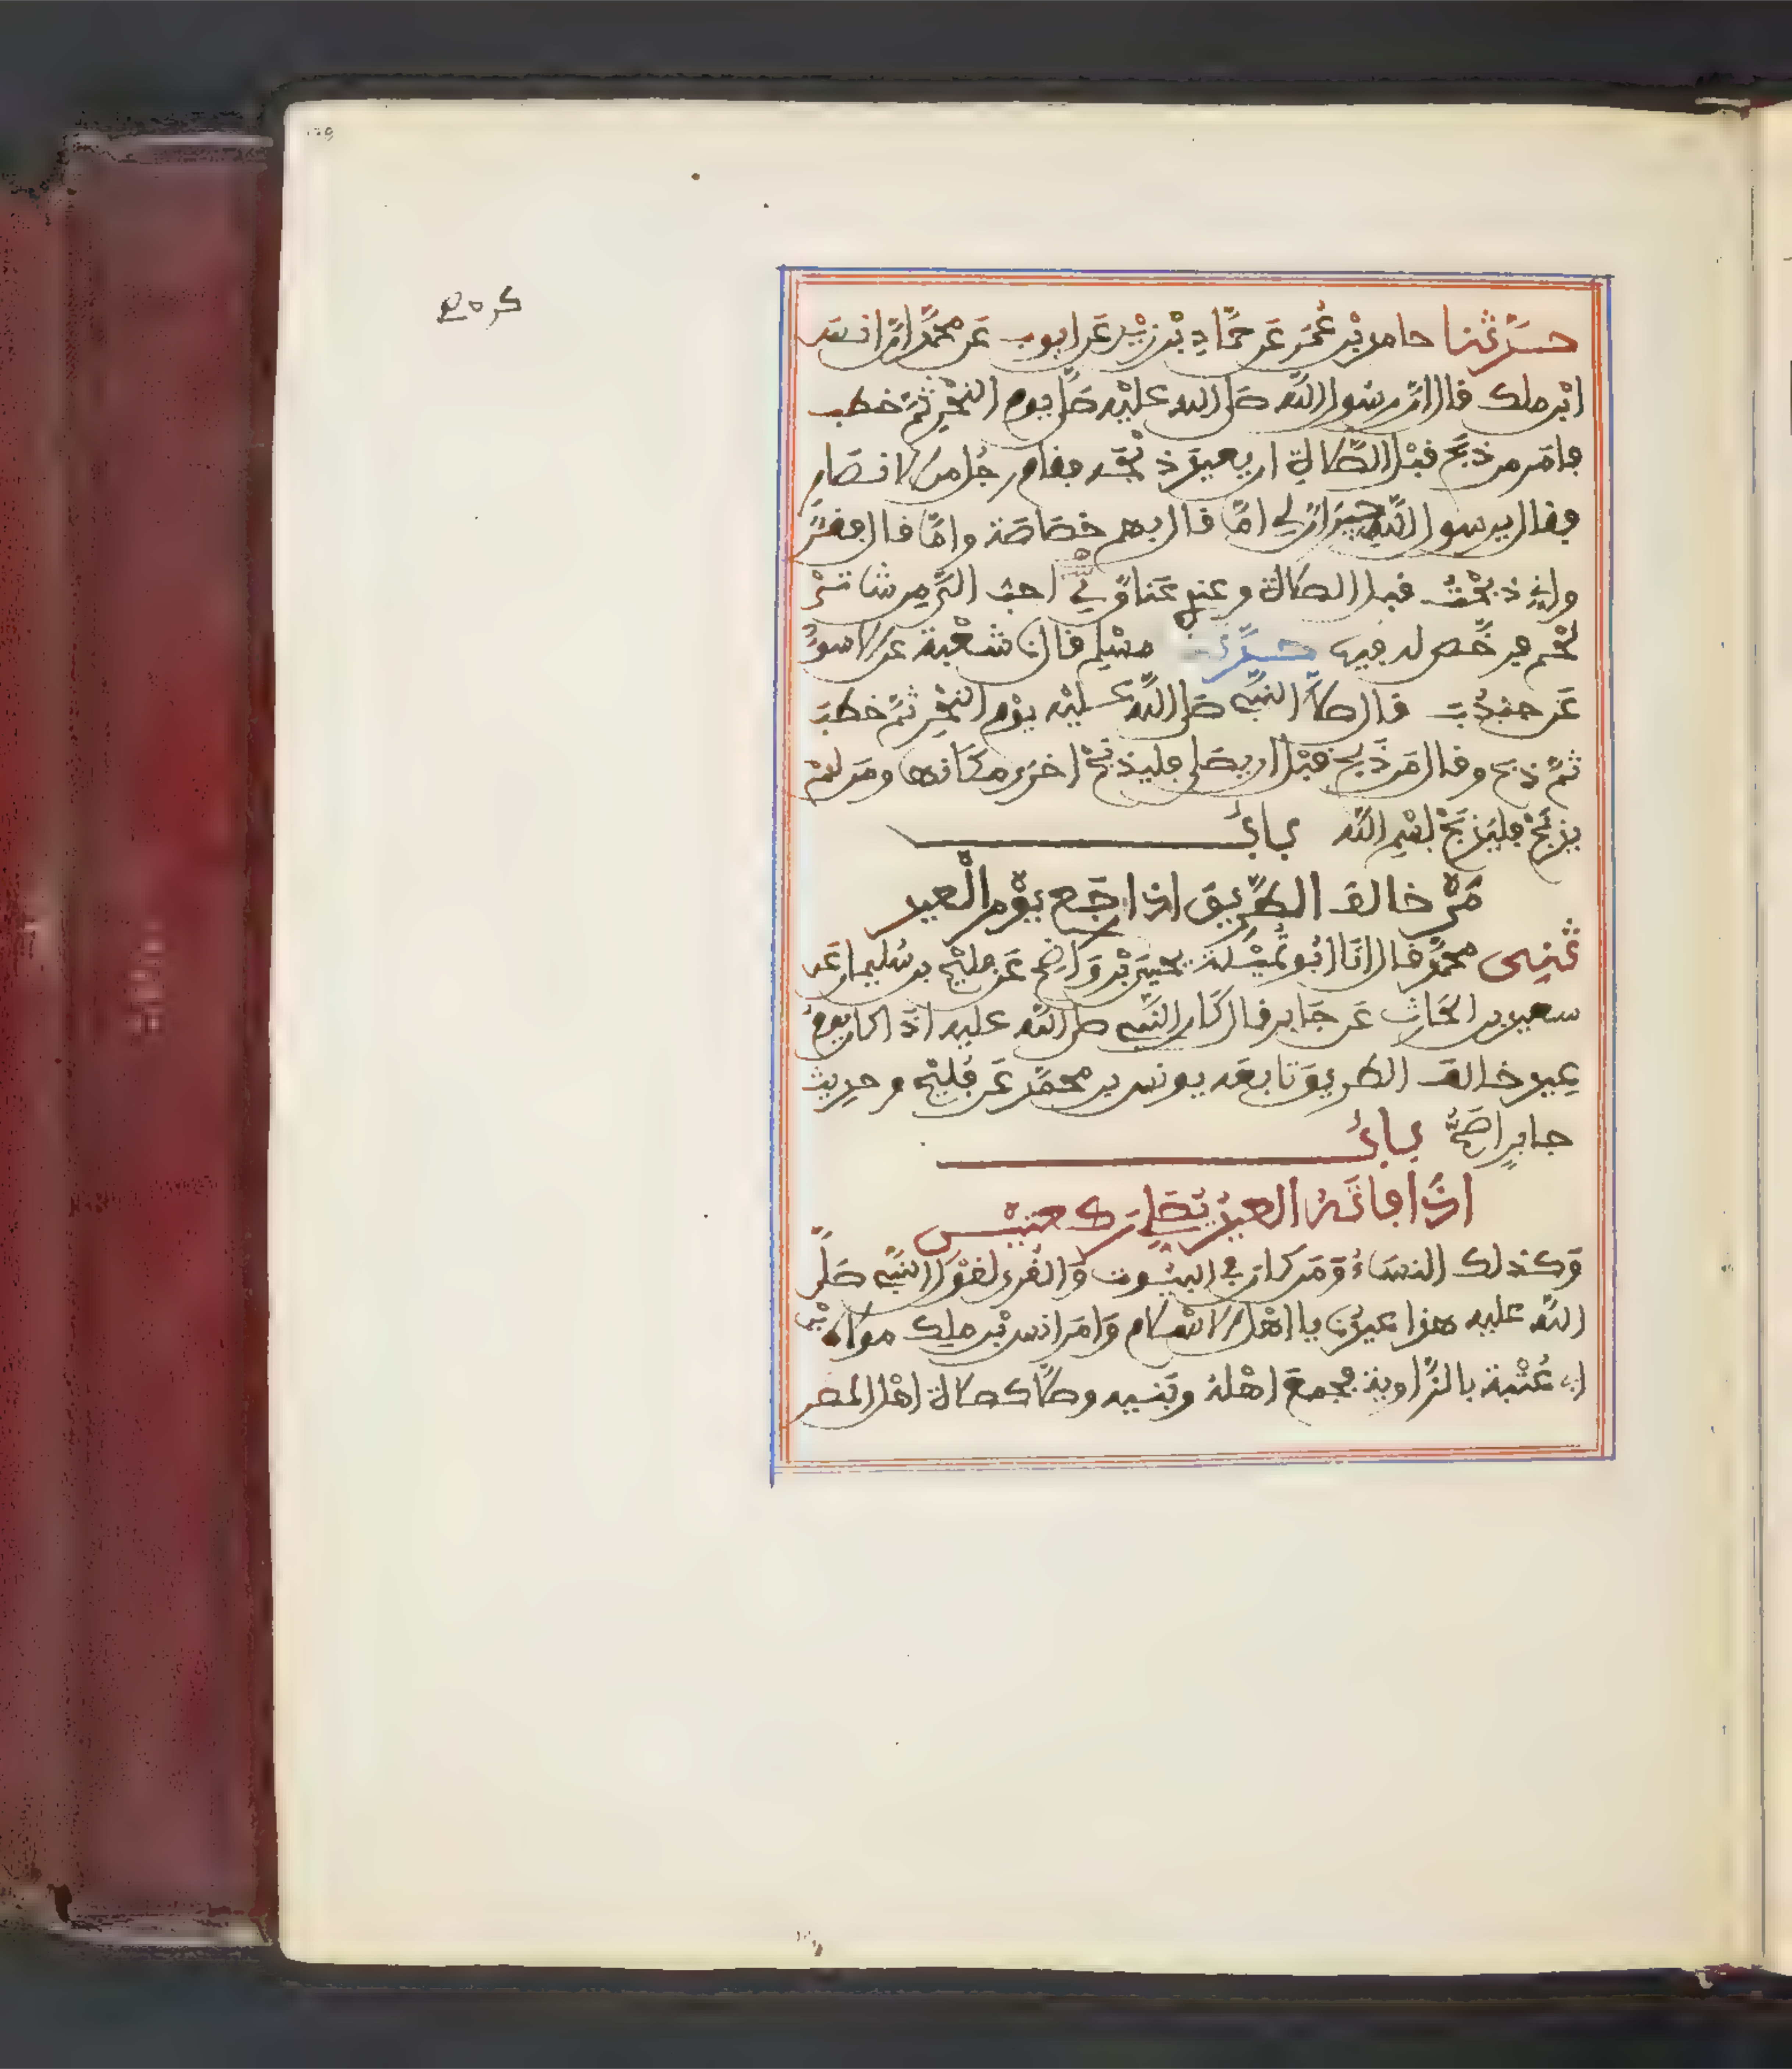 حدثنا حامد بن عمر عن حماد بن زيد عن ايوب عن محمد ان انس
ابن ملك قال ان رسول الله صلى الله عليه صلى يوم النحر ثم خطب
فامر من ذبح قبل الصلاة ان يعيد ذبحه فقام رجل من الانصار
فقال يرسول الله جيران لي اما قال بهم خصاصة واما قال فقر
واني ذبحت قبل الصلاة وعندي عناق لي احب الي من شاتي
لحم فرخص له فيه حدثنا مسلم قال نا شعبة عن الاسود
عن جندب قال صلى النبي صلى الله عليه يوم النحر ثم خطب
ثم ذبح وقال من ذبح قبل ان يصلي فليذبح اخرى مكانها ومن لم
يذبح فليذبح بسم الله باب
من خالف الطريق اذا رجع يوم العيد
ثني محمد قال انا ابو تميلة يحيى بن واضح عن فليح بن سليمان عن
سعيد بن الحارث عن جابر قال كان النبي صلى الله عليه اذا كان يوم
عيد خالف الطريق تابعه يونس بن محمد عن فليح وحديث
جابر اصح باب
اذا فاته العيد يصلي ركعتين
وكذلك النساء ومن كان في البيوت والقرى لقول النبي صلى
الله عليه هذا عيدنا يا اهل الاسلام وامر انس بن ملك مولاه
ابن ابي عتبة بالزاوية فجمع اهله وبنيه وصلى كصلاة اهل المصر